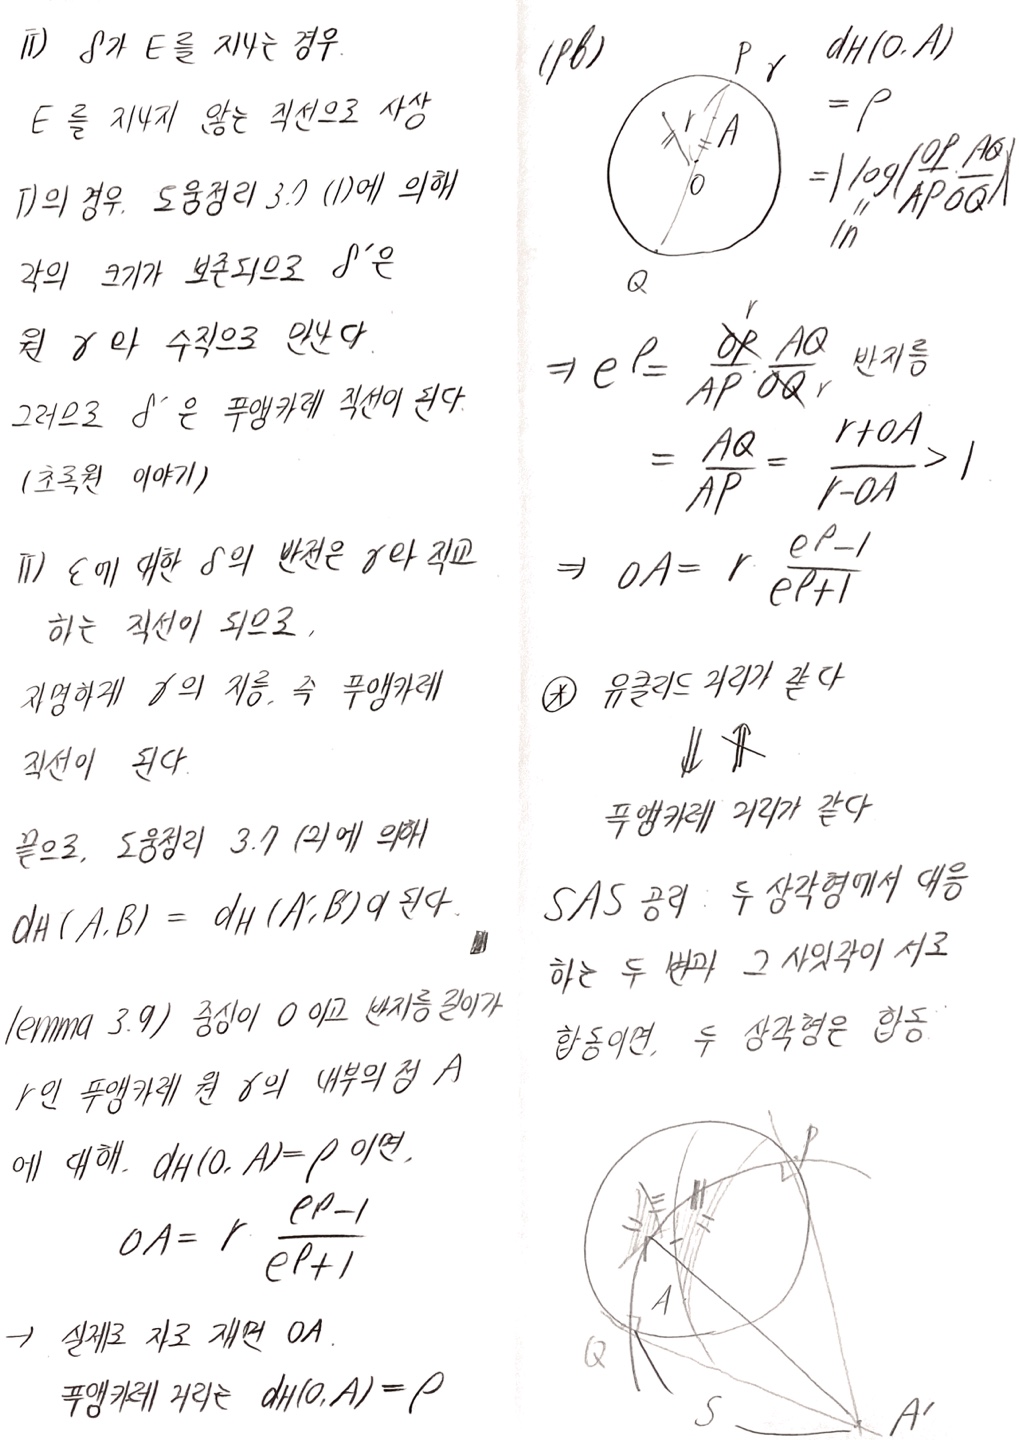 ii) δ가 E를 지나는 경우.
E를 지나지 않는 직선으로 사상
i)의 경우. 도움정리 3.7 (1)에 의해
각의 크기가 보존되므로 δ'은
원 γ와 수직으로 만난다.
그러므로 δ'은 푸앵카레 직선이 된다.
(초록원 이야기)
ii) ε에 대한 δ의 반전은 γ와 직교
하는 직선이 되므로,
자명하게 γ의 지름, 즉 푸앵카레
직선이 된다.
끝으로, 도움정리 3.7 (2)에 의해
dH(A,B) = dH(A',B')이 된다.
lemma 3.9) 중심이 O이고 반지름 길이가
r인 푸앵카레 원 γ의 내부의 점 A
에 대해. dH(O, A)=ρ 이면,
OA = r (e^ρ-1)/(e^ρ+1)
→ 실제로 자로 재면 OA.
푸앵카레 거리는 dH(O,A) = ρ
(pf)
P γ
r A
O
Q
dH(O, A)
= ρ
= |log(OP/AP · AQ/OQ)|
"
ln
⇒ e^ρ = OP/AP · AQ/OQ 반지름
r
r
= AQ/AP = (r+OA)/(r-OA) > 1
⇒ OA = r (e^ρ-1)/(e^ρ+1)
* 유클리드 거리가 같다
⇓ ⇑
푸앵카레 거리가 같다
SAS 공리 : 두 삼각형에서 대응
하는 두 변과 그 사잇각이 서로
합동이면, 두 삼각형은 합동.
P
A
Q
S
A'